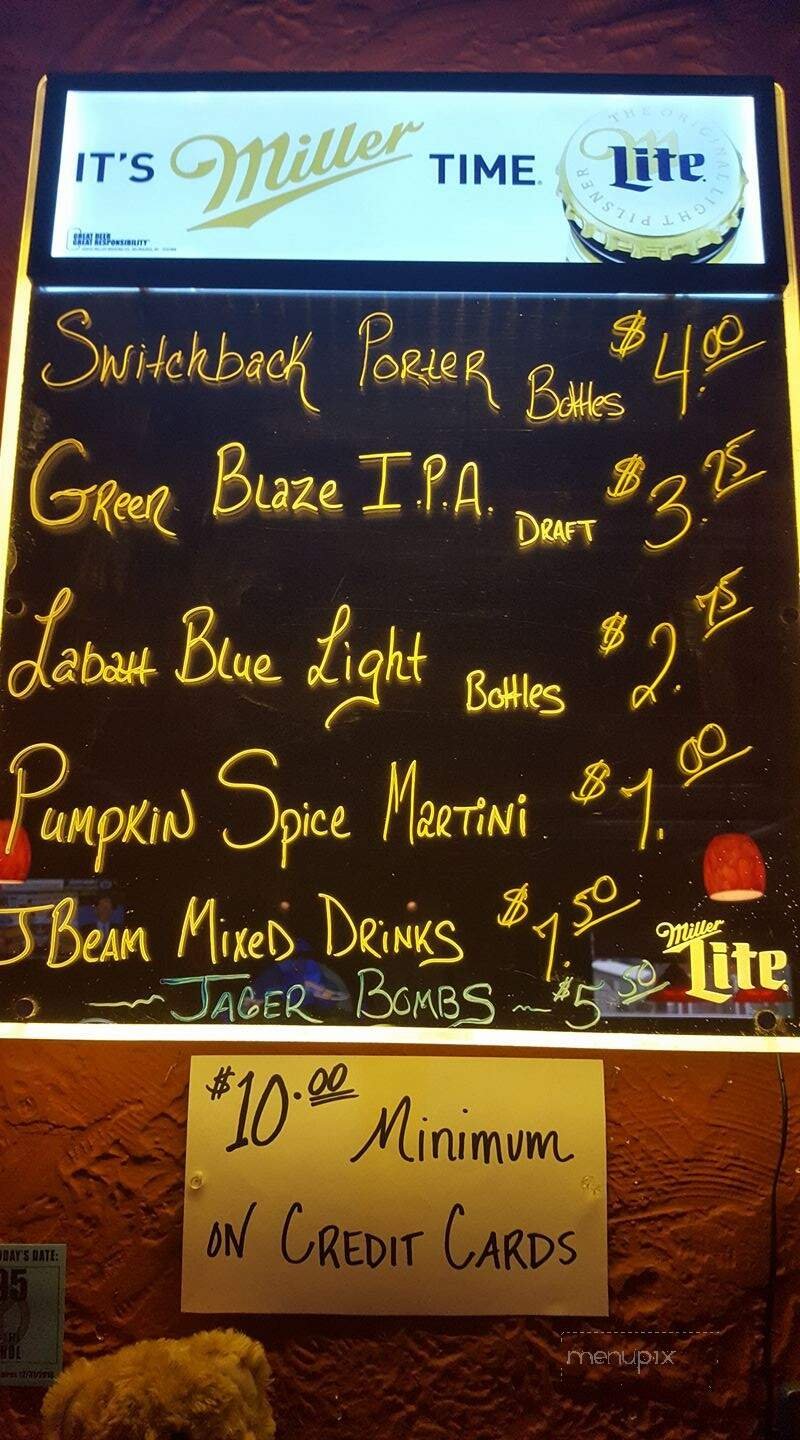 IT'S Miller TIME.
THE ORIGINAL LIGHT PILSNER
Lite
GREAT BEER
GREAT RESPONSIBILITY
Switchback Porter Bottles $4.00
Green Blaze I.P.A. DRAFT $3.25
Labatt Blue Light Bottles $2.75
Pumpkin Spice Martini $7.00
J Beam Mixed Drinks $7.50
Miller Lite
JAGER BOMBS $5.50
$10.00 Minimum
ON CREDIT CARDS
DAY'S DATE:
95
menupix